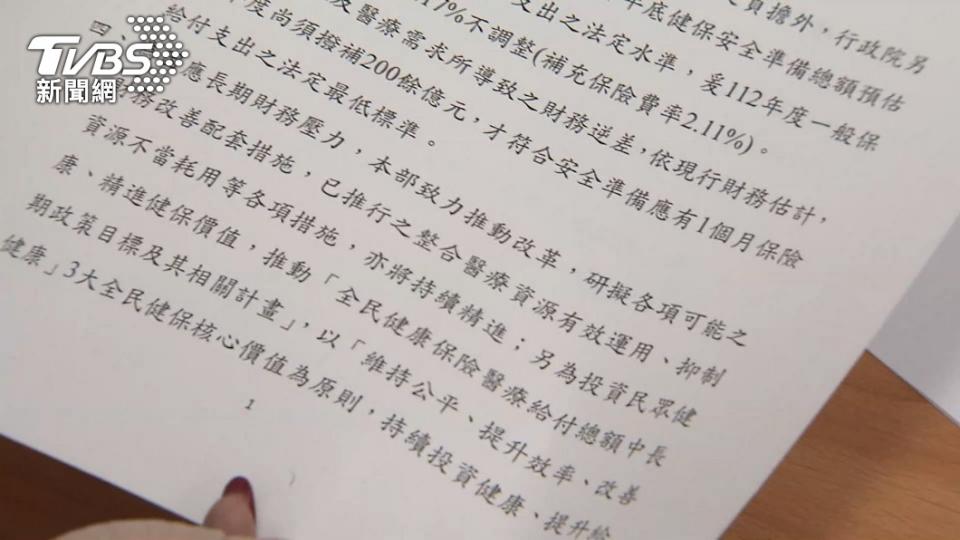 TVBS
新聞網
員擔外，行政院另
年底健保安全準備總額預估
支出之法定水準，爰112年度一般保
17%不調整(補充保險費率2.11%)。
及醫療需求所導致之財務逆差，依現行財務估計，
年度尚須撥補200餘億元，才符合安全準備應有1個月保險
給付支出之法定最低標準。
四、
應長期財務壓力，本部致力推動改革，研擬各項可能之
務改善配套措施，已推行之整合醫療資源有效運用、抑制
資源不當耗用等各項措施，亦將持續精進；另為投資民眾健
康、精進健保價值，推動「全民健康保險醫療給付總額中長
期政策目標及其相關計畫」，以「維持公平、提升效率、改善
健康」3大全民健保核心價值為原則，持續投資健康、提升給
1